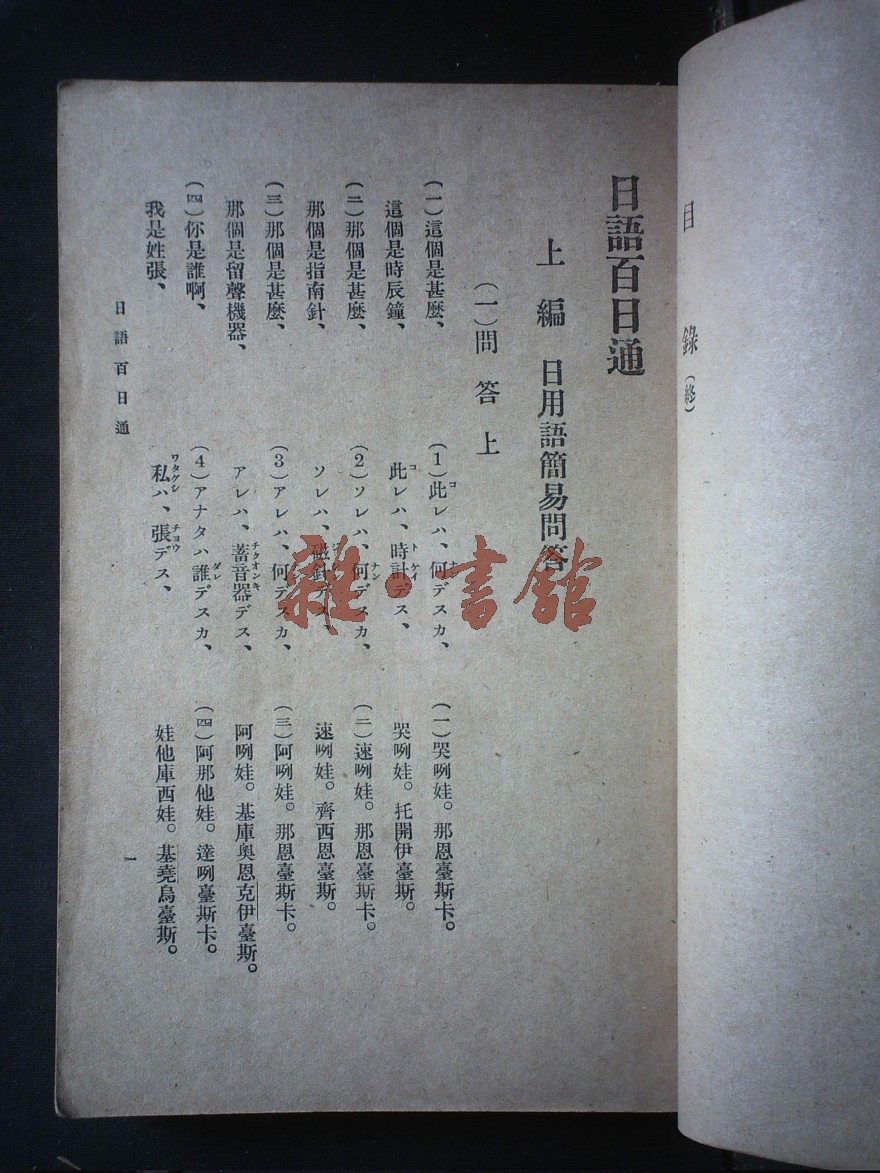 目錄(終)
日語百日通
上編 日用語簡易問答
(一)問答上
(一)這個是甚麼、
(1)此レハ、何デスカ、
(一)哭咧娃。那恩臺斯卡。
這個是時辰鐘、
此レハ、時計デス、
哭咧娃。托開伊臺斯。
(二)那個是甚麼、
(2)ソレハ、何デスカ、
(二)速咧娃。那恩臺斯卡。
那個是指南針、
ソレハ、磁針デス、
速咧娃。齊西恩臺斯。
(三)那個是甚麼、
(3)アレハ、何デスカ、
(三)阿咧娃。那恩臺斯卡。
那個是留聲機器、
アレハ、蓄音器デス、
阿咧娃。基庫奧恩克伊臺斯。
(四)你是誰啊、
(4)アナタハ誰デスカ、
(四)阿那他娃。達咧臺斯卡。
我是姓張、
私ハ、張デス、
娃他庫西娃。基堯烏臺斯。
日語百日通
一
雜·書館